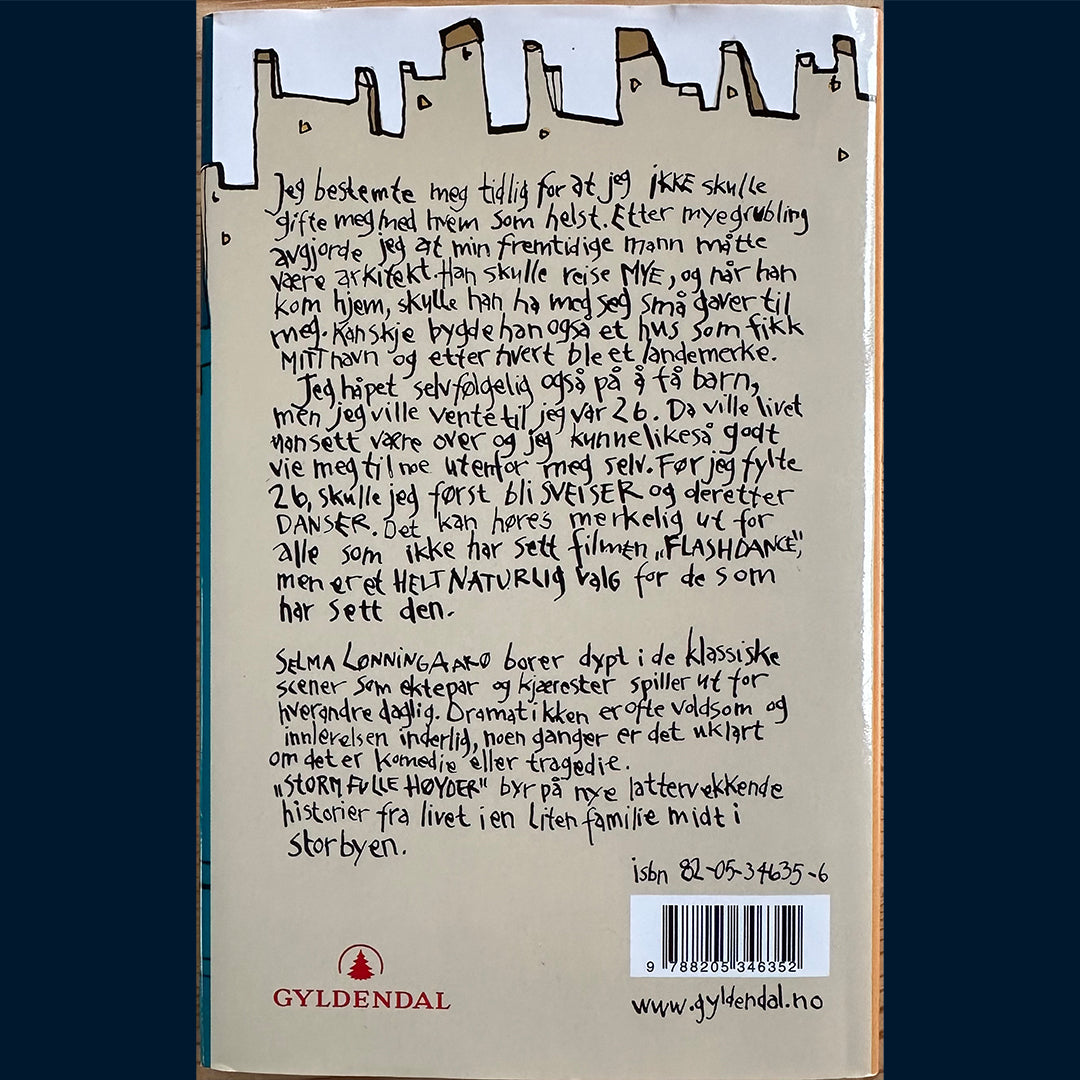 Jeg bestemte meg tidlig for at jeg IKKE skulle
gifte meg med hvem som helst. Etter mye grubling
avgjorde jeg at min fremtidige mann måtte
være arkitekt. Han skulle reise MYE, og når han
kom hjem, skulle han ha med seg små gaver til
meg. Kanskje bygde han også et hus som fikk
MITT navn og etter hvert ble et landemerke.
Jeg håpet selvfølgelig også på å få barn,
men jeg ville vente til jeg var 26. Da ville livet
uansett være over og jeg kunne likeså godt
vie meg til noe utenfor meg selv. Før jeg fylte
26, skulle jeg først bli SVEISER og deretter
DANSER. Det kan høres merkelig ut for
alle som ikke har sett filmen „FLASHDANCE",
men er et HELT NATURLIG valg for de som
har sett den.
SELMA LØNNING AARØ borer dypt i de klassiske
scener som ektepar og kjærester spiller ut for
hverandre daglig. Dramatikken er ofte voldsom og
innlevelsen inderlig, noen ganger er det uklart
om det er komedie eller tragedie.
„STORMFULLE HØYDER" byr på nye lattervekkende
historier fra livet i en liten familie midt i
storbyen.
isbn 82-05-34635-6
9 788205 346352
GYLDENDAL
www.gyldendal.no